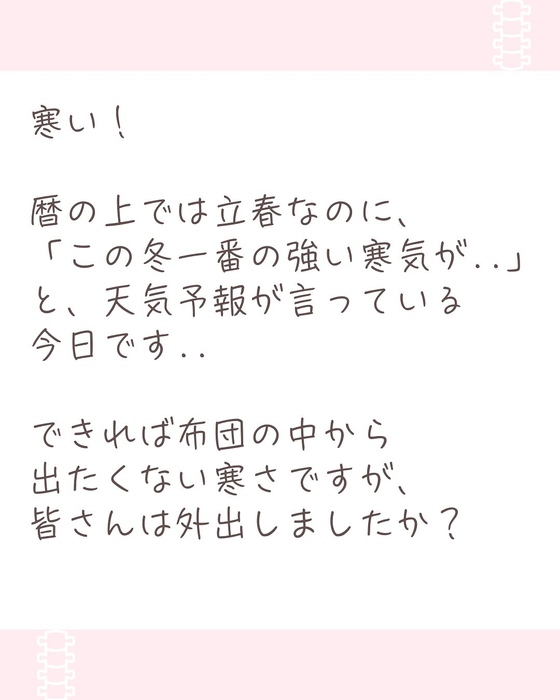 寒い！
暦の上では立春なのに、
「この冬一番の強い寒気が..」
と、天気予報が言っている
今日です..
できれば布団の中から
出たくない寒さですが、
皆さんは外出しましたか？